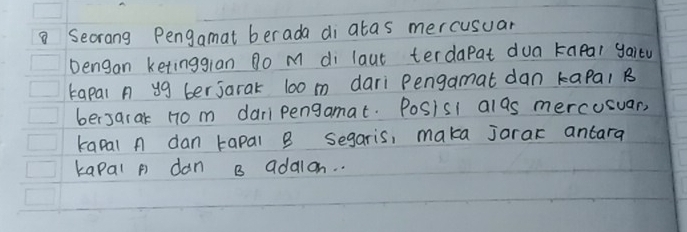 8 Seorang Pengamat berada di atas mercusuar
Dengan ketinggian 80 M di laut terdapat dua kapal yaitu
kapal A yg berjarak 100 m dari Pengamat dan kapal B
berjarak 170 m dari Pengamat. Posisi alas mercusuar,
kapal A dan kapal B segaris, maka jarak antara
kapal A dan B adalah..